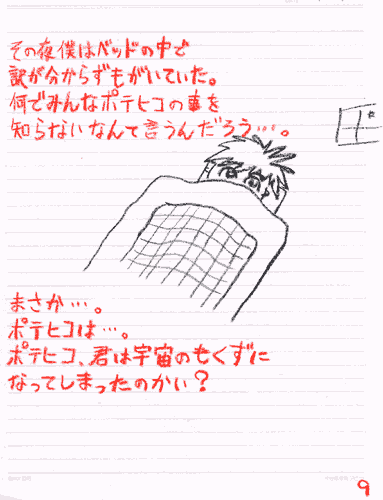 その夜僕はベッドの中で
訳が分からずもがいていた。
何でみんなポテヒコの事を
知らないなんて言うんだろう…。
まさか…。
ポテヒコは…。
ポテヒコ、君は宇宙のもくずに
なってしまったのかい？
9